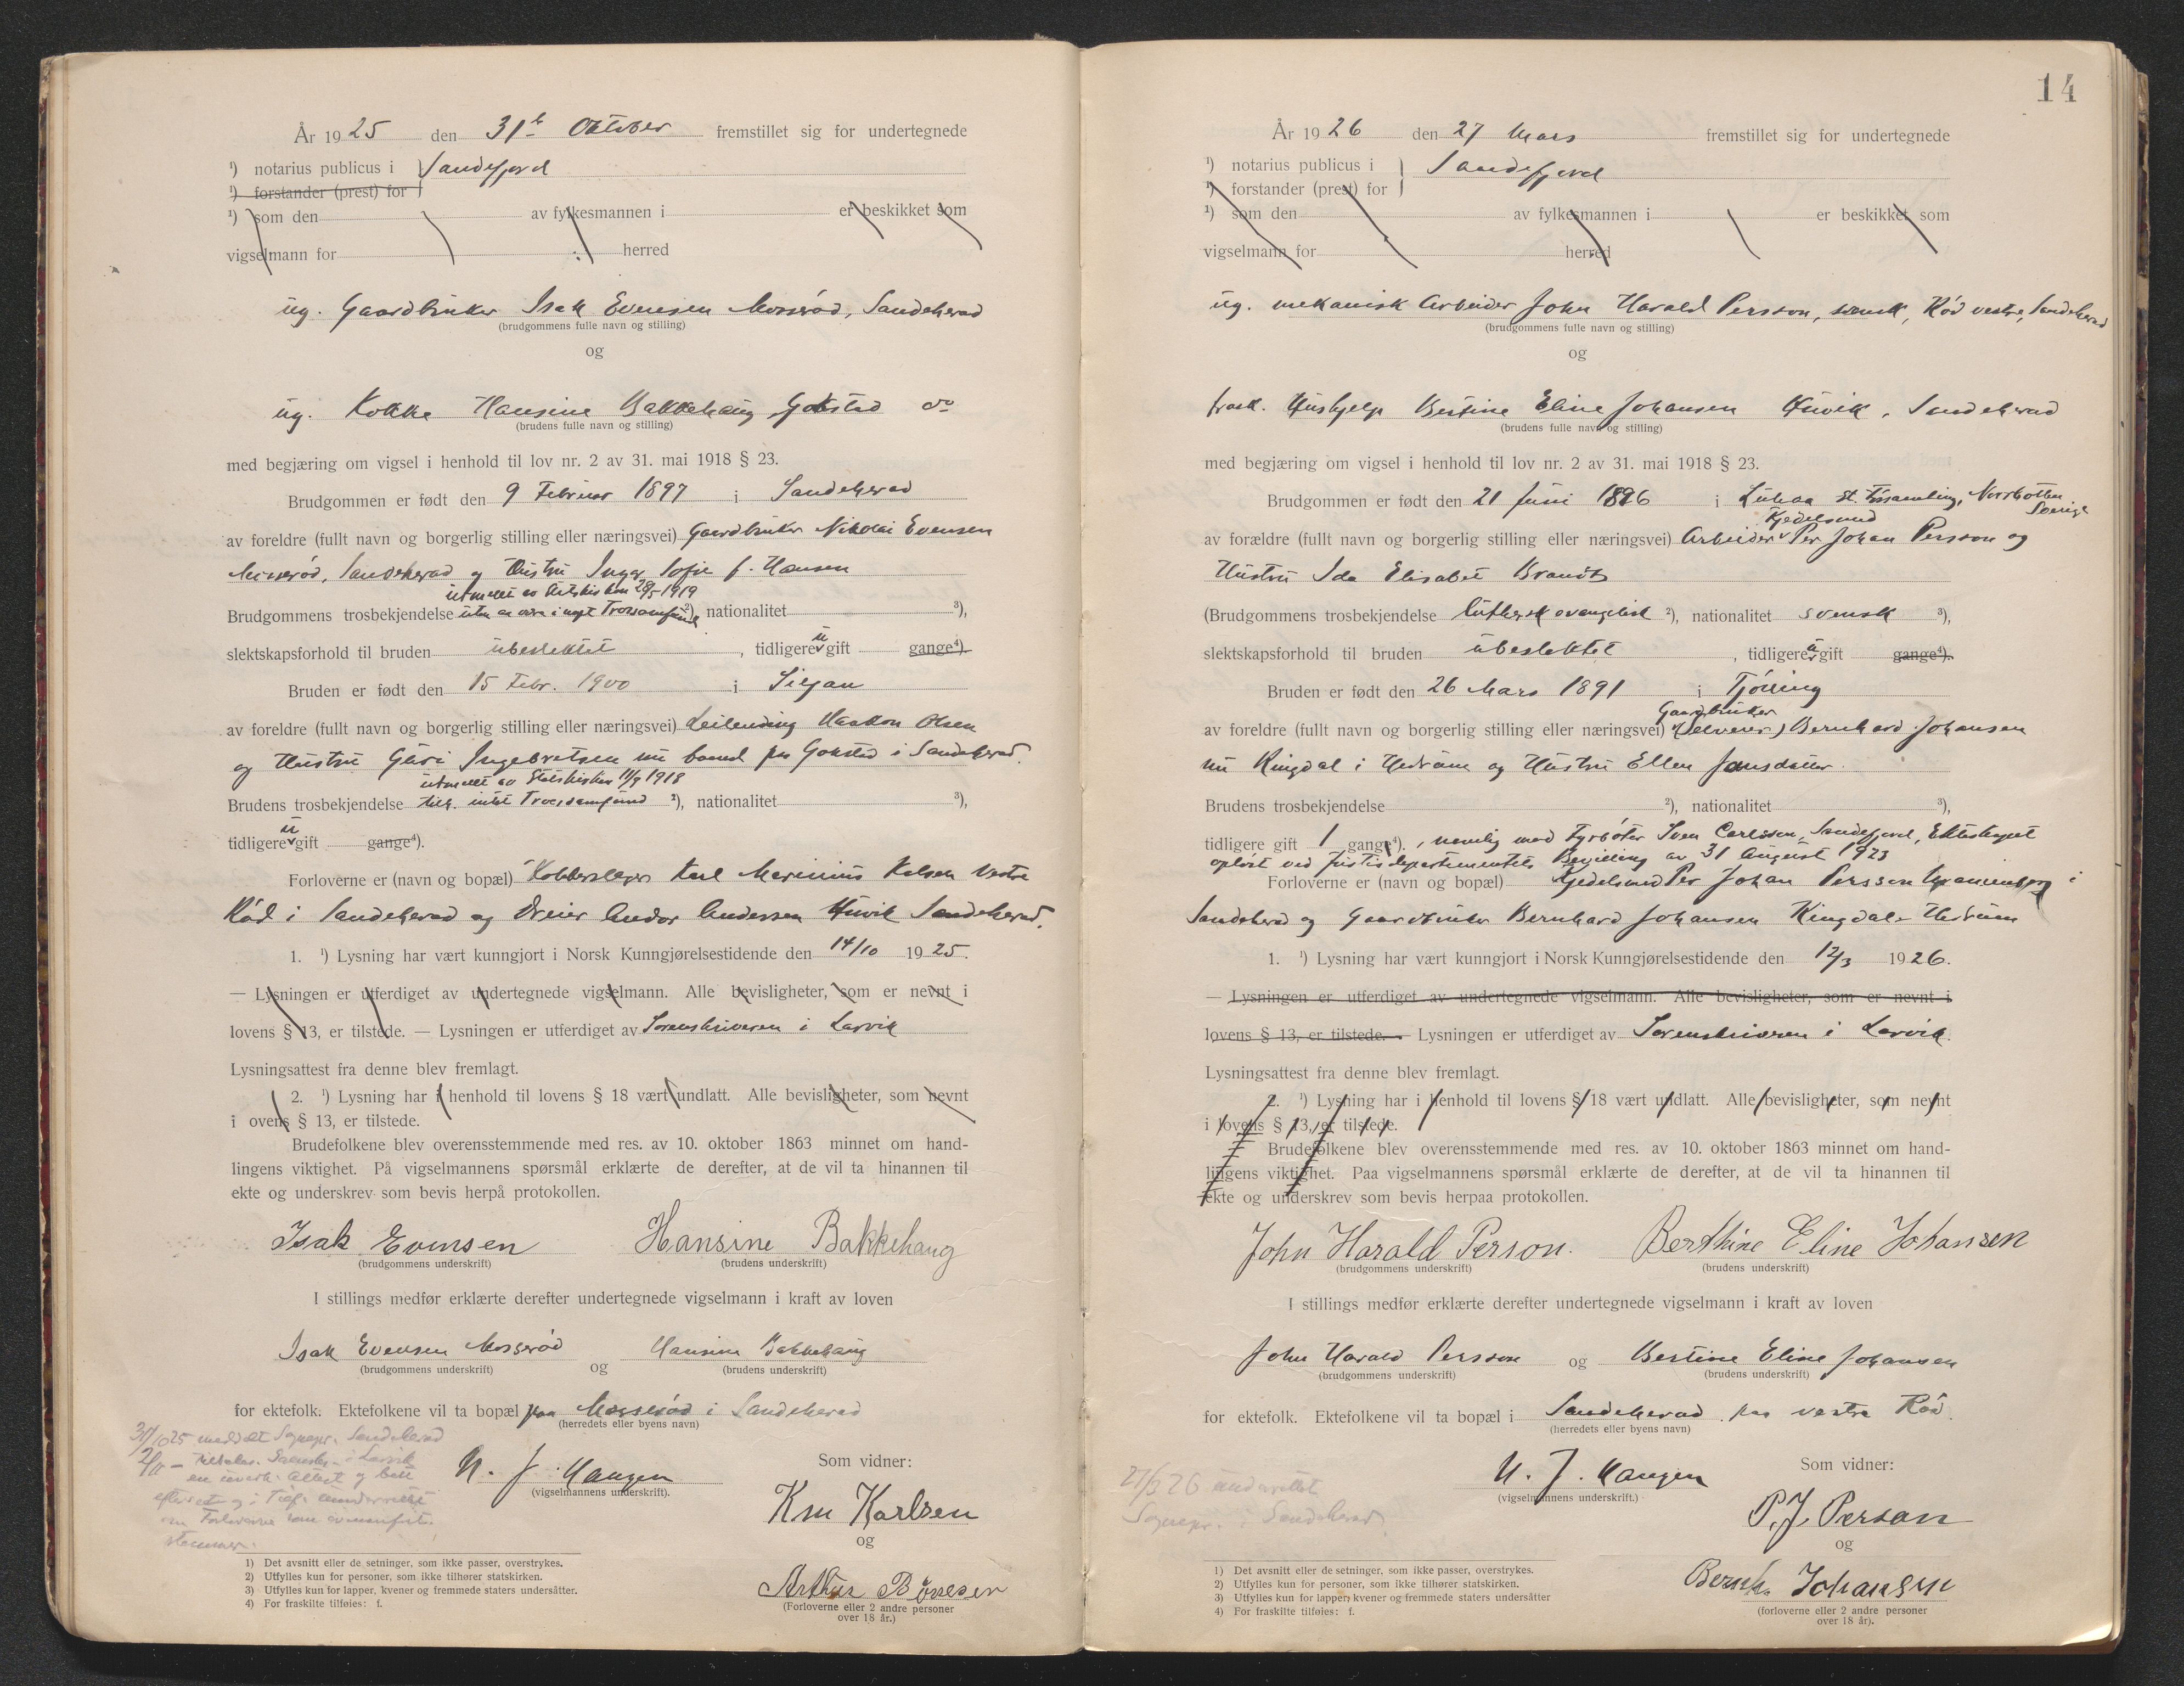 År 1925 den 31te Oktober fremstillet sig for undertegnede
¹) notarius publicus i } Sandefjord
¹) forstander (prest) for }
¹) som den av fylkesmannen i er beskikket som
vigselmann for herred
ug. Gaardbruker Isak Evensen Mosserød, Sandeherad
(brudgommens fulle navn og stilling)
og
ug. Kokke Hansine Bakkehaug Gokstad do
(brudens fulle navn og stilling)
med begjæring om vigsel i henhold til lov nr. 2 av 31. mai 1918 § 23.
Brudgommen er født den 9 Februar 1897 i Sandeherad
av foreldre (fullt navn og borgerlig stilling eller næringsvei) Gaardbruker Nikolai Evensen
Mosserød, Sandeherad og Hustru Inger Sofie f. Hansen
utmeldt av Statskirken 28/5 1919
Brudgommens trosbekjendelse uten at være i noget Trossamfund ²), nationalitet ³),
slektskapsforhold til bruden ubeslektet , tidligere u gift gange⁴).
Bruden er født den 15 Febr. 1900 i Siljan
av foreldre (fullt navn og borgerlig stilling eller næringsvei) Leilending Haakon Olsen
og Hustru Guri Ingebretsen nu boend paa Gokstad i Sandeherad.
utmeldt av Statskirken 11/9 1918
Brudens trosbekjendelse tilh. intet Trossamfund ²), nationalitet ³),
tidligere u gift gange⁴).
Forloverne er (navn og bopæl) Kobberslager Karl Marinius Kolsen Vestre
Rød i Sandeherad og Dreier Andor Andersen Huvik Sandeherad.
1. ¹) Lysning har vært kunngjort i Norsk Kunngjørelsestidende den 14/10 1925.
— Lysningen er utferdiget av undertegnede vigselmann. Alle bevisligheter, som er nevnt i
lovens § 13, er tilstede. — Lysningen er utferdiget av Sorenskriveren i Larvik
Lysningsattest fra denne blev fremlagt.
2. ¹) Lysning har i henhold til lovens § 18 vært undlatt. Alle bevisligheter, som nevnt
i ovens § 13, er tilstede.
Brudefolkene blev overensstemmende med res. av 10. oktober 1863 minnet om hand-
lingens viktighet. På vigselmannens spørsmål erklærte de derefter, at de vil ta hinannen til
ekte og underskrev som bevis herpå protokollen.
Isak Evensen Hansine Bakkehaug
(brudgommens underskrift) (brudens underskrift)
I stillings medfør erklærte derefter undertegnede vigselmann i kraft av loven
Isak Evensen Mosserød og Hansine Bakkehaug
(brudgommens underskrift) (brudens underskrift)
for ektefolk. Ektefolkene vil ta bopæl paa Mosserød i Sandeherad
(herredets eller byens navn)
31/10 25 meddelt Sognepr. Sandeherad
Som vidner:
N. J. Haugen
(vigselmannens underskrift).
Km Karlsen
og
Arthur Børresen
(Forloverne eller 2 andre personer
over 18 år.)
1) Det avsnitt eller de setninger, som ikke passer, overstrykes.
2) Utfylles kun for personer, som ikke tilhører statskirken.
3) Utfylles kun for lapper, kvener og fremmede staters undersåtter.
4) For fraskilte tilføies: f.
14
År 1926 den 27 Mars fremstillet sig for undertegnede
¹) notarius publicus i } Sandefjord
¹) forstander (prest) for }
¹) som den av fylkesmannen i er beskikket som
vigselmann for herred
ug. mekanisk Arbeider John Harald Persson, svensk, Rød vestre, Sandeherad
(brudgommens fulle navn og stilling)
og
frask. Hushjelp Bertine Eline Johansen Huvik, Sandeherad
(brudens fulle navn og stilling)
med begjæring om vigsel i henhold til lov nr. 2 av 31. mai 1918 § 23.
Brudgommen er født den 21 Juni 1896 i Luleaa st. Församling, Norrbotten Sverige
Kjedelsmed
av forældre (fullt navn og borgerlig stilling eller næringsvei) Arbeider Per Johan Persson og
Hustru Ida Elisabet Brandt
(Brudgommens trosbekjendelse luthersk evangelisk ²), nationalitet svensk ³),
slektskapsforhold til bruden ubeslektet , tidligere u gift gange⁴).
Bruden er født den 26 Mars 1891 i Tjølling
Gaardbruker
av foreldre (fullt navn og borgerlig stilling eller næringsvei) (Selveier) Bernhard Johansen
nu Ringdal i Hedrum og Hustru Ellen Jansdatter.
Brudens trosbekjendelse ²), nationalitet ³),
tidligere gift 1 gang⁴)., nemlig med Fyrbøter Sven Carlsson, Sandefjord, Ekteskapet
opløst ved Justisdepartementets Bevilling av 31 August 1923
Forloverne er (navn og bopæl) Kjedelsmed Per Johan Persson i
Sandeherad og Gaardbruker Bernhard Johansen Ringdal Hedrum
1. ¹) Lysning har vært kunngjort i Norsk Kunngjørelsestidende den 12/3 1926.
— Lysningen er utferdiget av undertegnede vigselmann. Alle bevisligheter, som er nevnt i
lovens § 13, er tilstede. — Lysningen er utferdiget av Sorenskriveren i Larvik.
Lysningsattest fra denne blev fremlagt.
2. ¹) Lysning har i henhold til lovens § 18 vært undlatt. Alle bevisligheter, som nevnt
i lovens § 13, er tilstede.
Brudefolkene blev overensstemmende med res. av 10. oktober 1863 minnet om hand-
lingens viktighet. Paa vigselmannens spørsmål erklærte de derefter, at de vil ta hinannen til
ekte og underskrev som bevis herpaa protokollen.
John Harald Person. Berthine Eline Johansen
(brudgommens underskrift) (brudens underskrift)
I stillings medfør erklærte derefter undertegnede vigselmann i kraft av loven
John Harald Persson og Bertine Eline Johansen
(brudgommens underskrift) (brudens underskrift)
for ektefolk. Ektefolkene vil ta bopæl i Sandeherad paa vestre Rød.
(herredets eller byens navn)
27/3 26 underrettet
Sognepr. i Sandeherad.
N. J. Haugen
(vigselmannens underskrift.)
Som vidner:
P. J. Person
og
Bernh. Johansen
(forloverne eller 2 andre personer
over 18 år).
1) Det avsnitt eller de setninger, som ikke passer, overstrykes.
2) Utfylles kun for personer, som ikke tilhører statskirken.
3) Utfylles kun for lapper, kvener og fremmede staters undersåtter
4) For fraskilte tilføies: f.